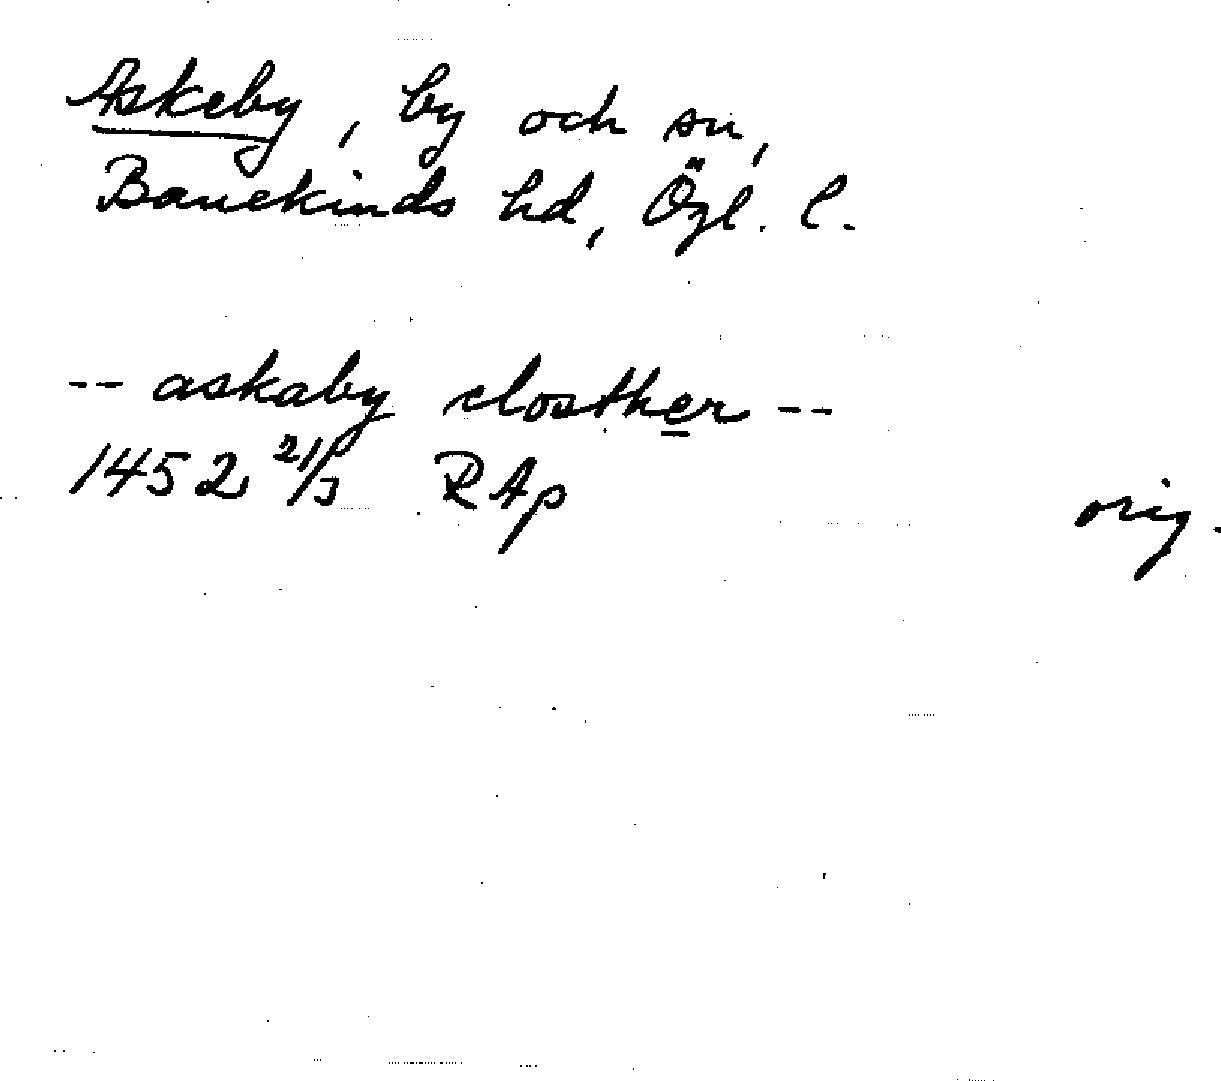 Askeby, by och sn,
Banekinds hd, Ögl. l.
-- askaby closther --
1452 21/3 RAp orig.